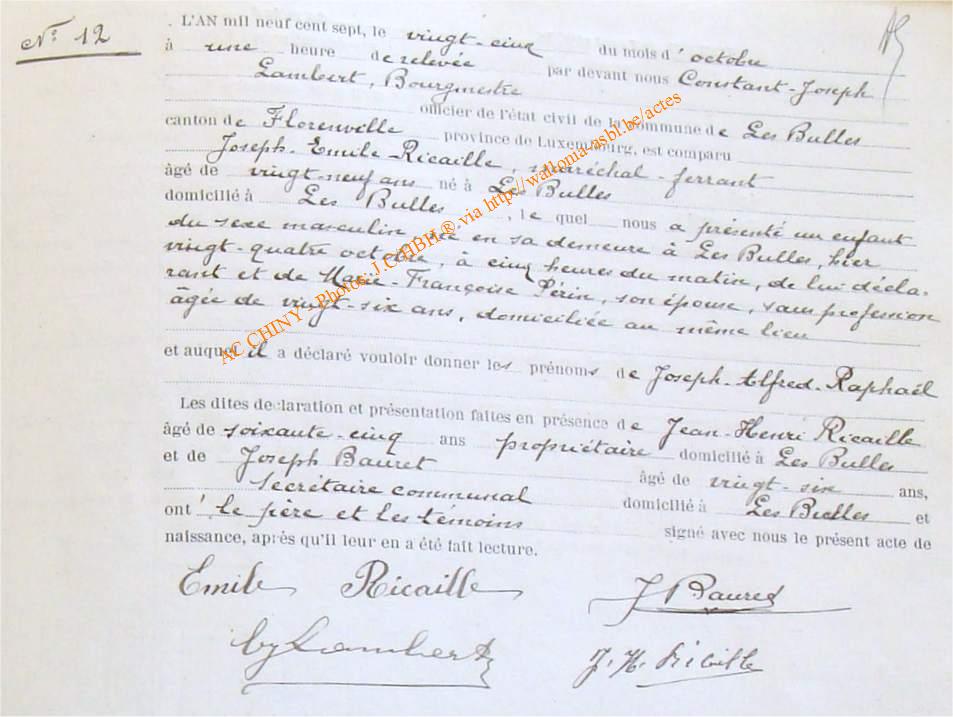 Nº 12
L'AN mil neuf cent sept, le vingt-cinq du mois d'octobre
à une heure de relevée par devant nous Constant-Joseph
Lambert, Bourgmestre
officier de l'état civil de la commune de Les Bulles
canton de Florenville province de Luxembourg, est comparu
Joseph-Emile Ricaille, maréchal-ferrant
âgé de vingt-neuf ans né à Les Bulles
domicilié à Les Bulles, lequel nous a présenté un enfant
du sexe masculin, né en sa demeure à Les Bulles, hier
vingt-quatre octobre, à cinq heures du matin, de lui décla-
rant et de Marie-Françoise Périn, son épouse, sans profession
âgée de vingt-six ans, domiciliée au même lieu
et auquel il a déclaré vouloir donner les prénoms de Joseph-Alfred-Raphaël
Les dites declaration et présentation faites en présence de Jean-Henri Ricaille
âgé de soixante-cinq ans propriétaire domicilié à Les Bulles
et de Joseph Bauret âgé de vingt-six ans,
secrétaire communal domicilié à Les Bulles et
ont le père et les témoins signé avec nous le présent acte de
naissance, après qu'il leur en a été fait lecture.
Emile Ricaille J Bauret
Lambert J. H. Ricaille
AC CHINY - Photos: J.C HBH ® via http://wallonia-asbl.be/actes